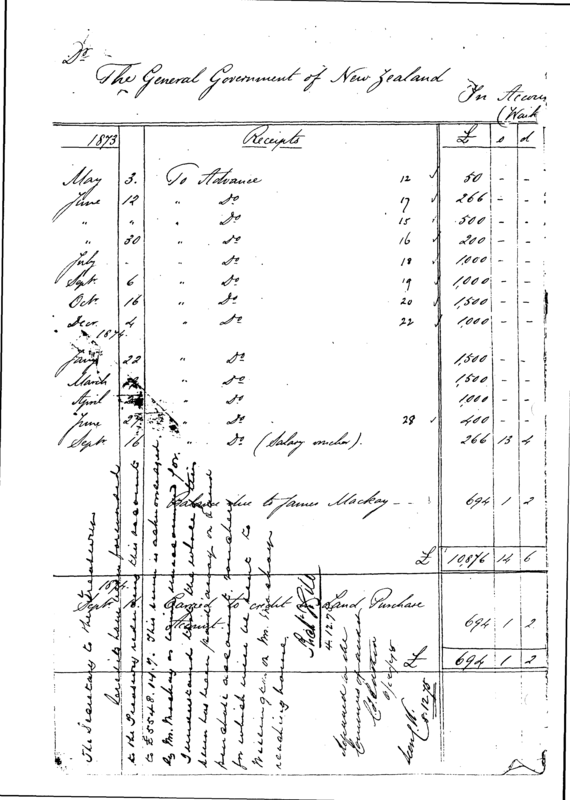 Dr
The General Government of New Zealand
In Accou
(Waik
1873 Receipts £ s d
May 3. To Advance 12 ✓ 50 - -
June 12 " Do 17 ✓ 266 - -
" " " Do 15 ✓ 500 - -
" 30 " Do 16 ✓ 200 - -
July - - Do 18 ✓ 1,000 - -
Sept. 6 " Do 19 ✓ 1,000 - -
Oct. 16 " Do 20 ✓ 1,500 - -
Decr. 4 " Do 22 ✓ 1,000 - -
1874.
Jany 22 " Do 1,500 - -
March " Do 1,500 - -
April " Do 1,000 - -
June 27 " Do 28 ✓ 400 - -
Sept. 16 " Do (Salary voucher). 266 13 4
Balance due to James Mackay -- 694 1 2
£ 10,876 14 6
1874.
Sept. Passed to credit Land Purchase
Account. 694 1 2
£ 694 1 2
The Secretary to the Treasury
have been forwarded
to the Treasury this account
to £5548.14.9. This sum is acknowledged
by Mr Mackay as unaccounted for.
I understand that the whole of this
sum has been paid away on land
purchase account vouchers
for which will be sent to
Wellington on Mr. Mackays
reaching home.